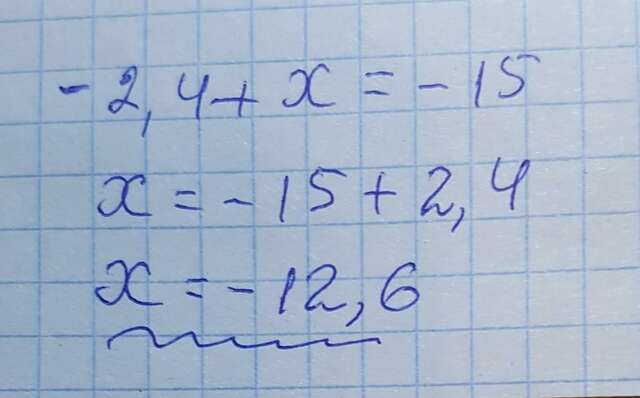 -2,4+x=-15
x=-15+2,4
x=-12,6